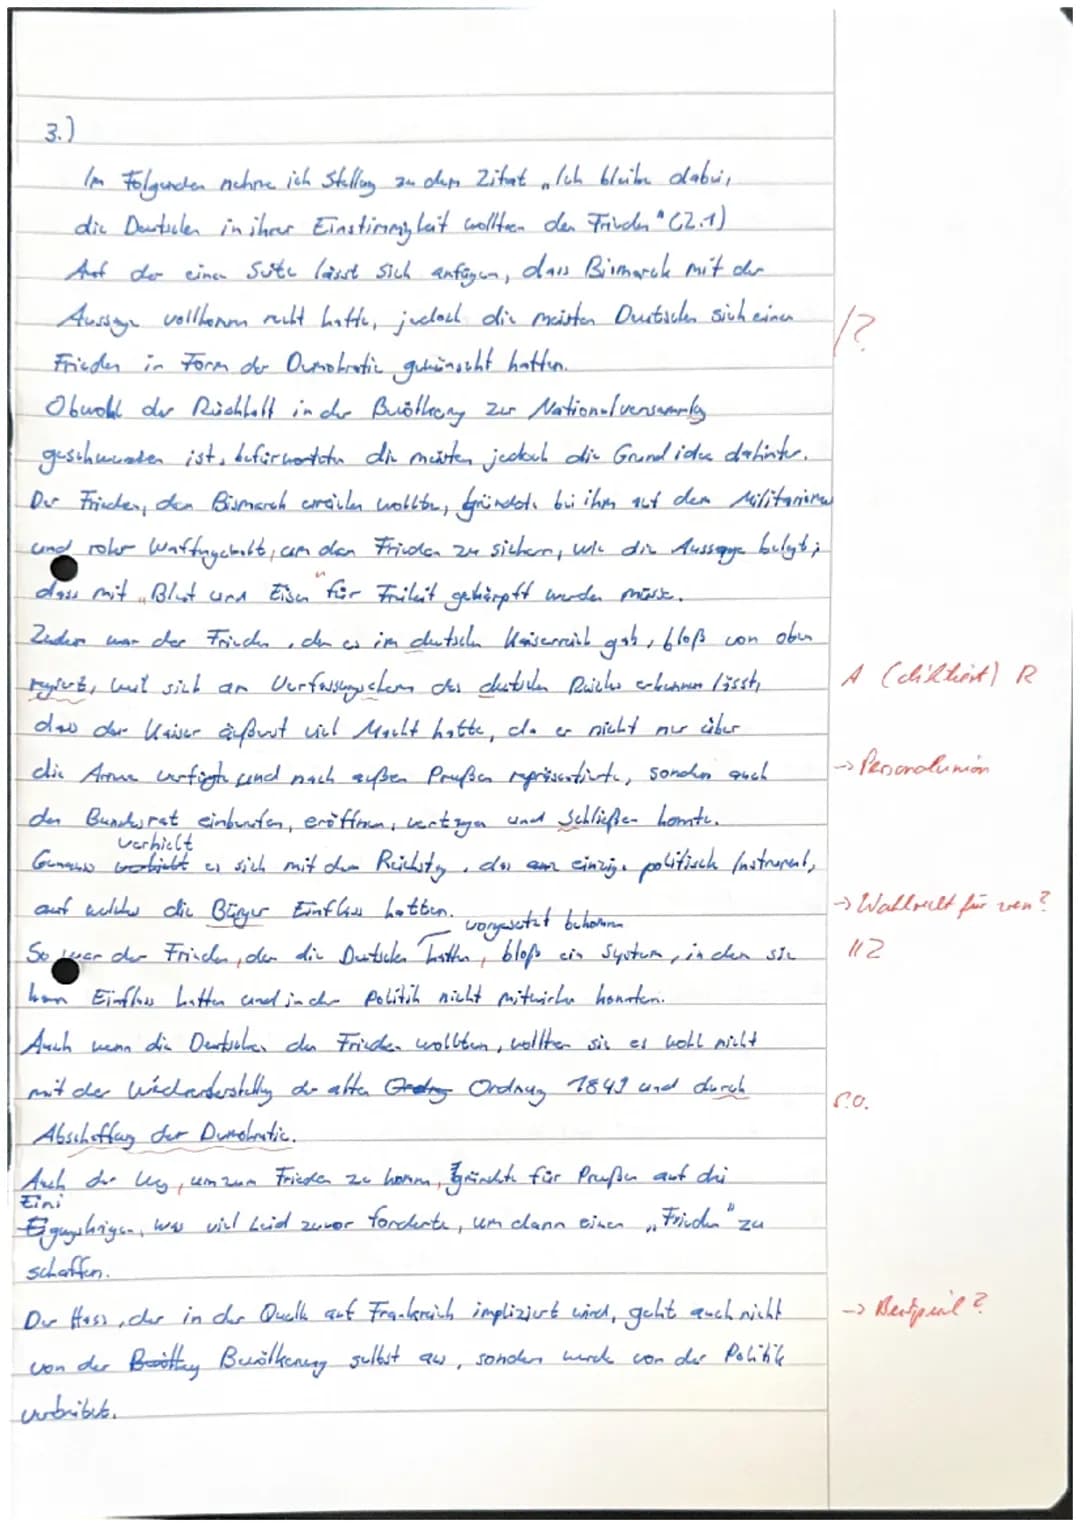 3.)
Im Folgenden nehme ich Stellung zu dem Zitat „Ich bleibe dabei,
die Deutschen in ihrer Einstimmigkeit wollten den Frieden" (Z.1)
Auf der einen Seite lässt sich anfügen, dass Bismarck mit der
Aussage vollkommen recht hatte, jedoch die meisten Deutschen sich einen
/?
Frieden in Form der Demokratie gewünscht hatten.
Obwohl der Rückhalt in der Bevölkerung zur Nationalversammlung
geschwunden ist, befürworteten die meisten jedoch die Grundidee dahinter.
Der Frieden, den Bismarck erzielen wollte, gründete bei ihm auf dem Militarismus
und roher Waffengewalt, um den Frieden zu sichern, wie die Aussage belegt,
dass mit „Blut und Eisen" für Freiheit gekämpft werden müsse.
Zudem war der Frieden, den es im deutschen Kaiserreich gab, bloß von oben
regiert, weil sich am Verfassungschema des deutschen Reiches erkennen lässt,
A (diktiert) R
dass der Kaiser äußerst viel Macht hatte, da er nicht nur über
die Armee verfügte und nach außen Preußen repräsentierte, sondern auch
-> Personalunion
den Bundesrat einberufen, eröffnen, vertagen und Schließen konnte.
verhielt
Genauso es sich mit dem Reichstag, das einzige politisch Instrument,
auf welches die Bürger Einfluss hatten.
-> Wahlrecht für wen?
vorgesetzt bekommen
So war der Frieden, den die Deutschen hatten, bloß ein System, in dem sie
// Z
kaum Einfluss hatten und in der Politik nicht mitwirken konnten.
Auch wenn die Deutschen den Frieden wollten, wollten sie es wohl nicht
mit der Wiederherstellung der alten Ordnung 1849 und durch
s.o.
Abschaffung der Demokratie.
Auch der Weg, um zum Frieden zu kommen, gründete für Preußen auf drei
Eini
Eigungskriegen, was viel Leid zuvor forderte, um dann einen „Frieden" zu
schaffen.
Der Hass, der in der Quelle auf Frankreich impliziert wird, geht auch nicht
-> Beispiel?
von der Bevölkerung selbst aus, sondern wurde von der Politik
verbreitet.